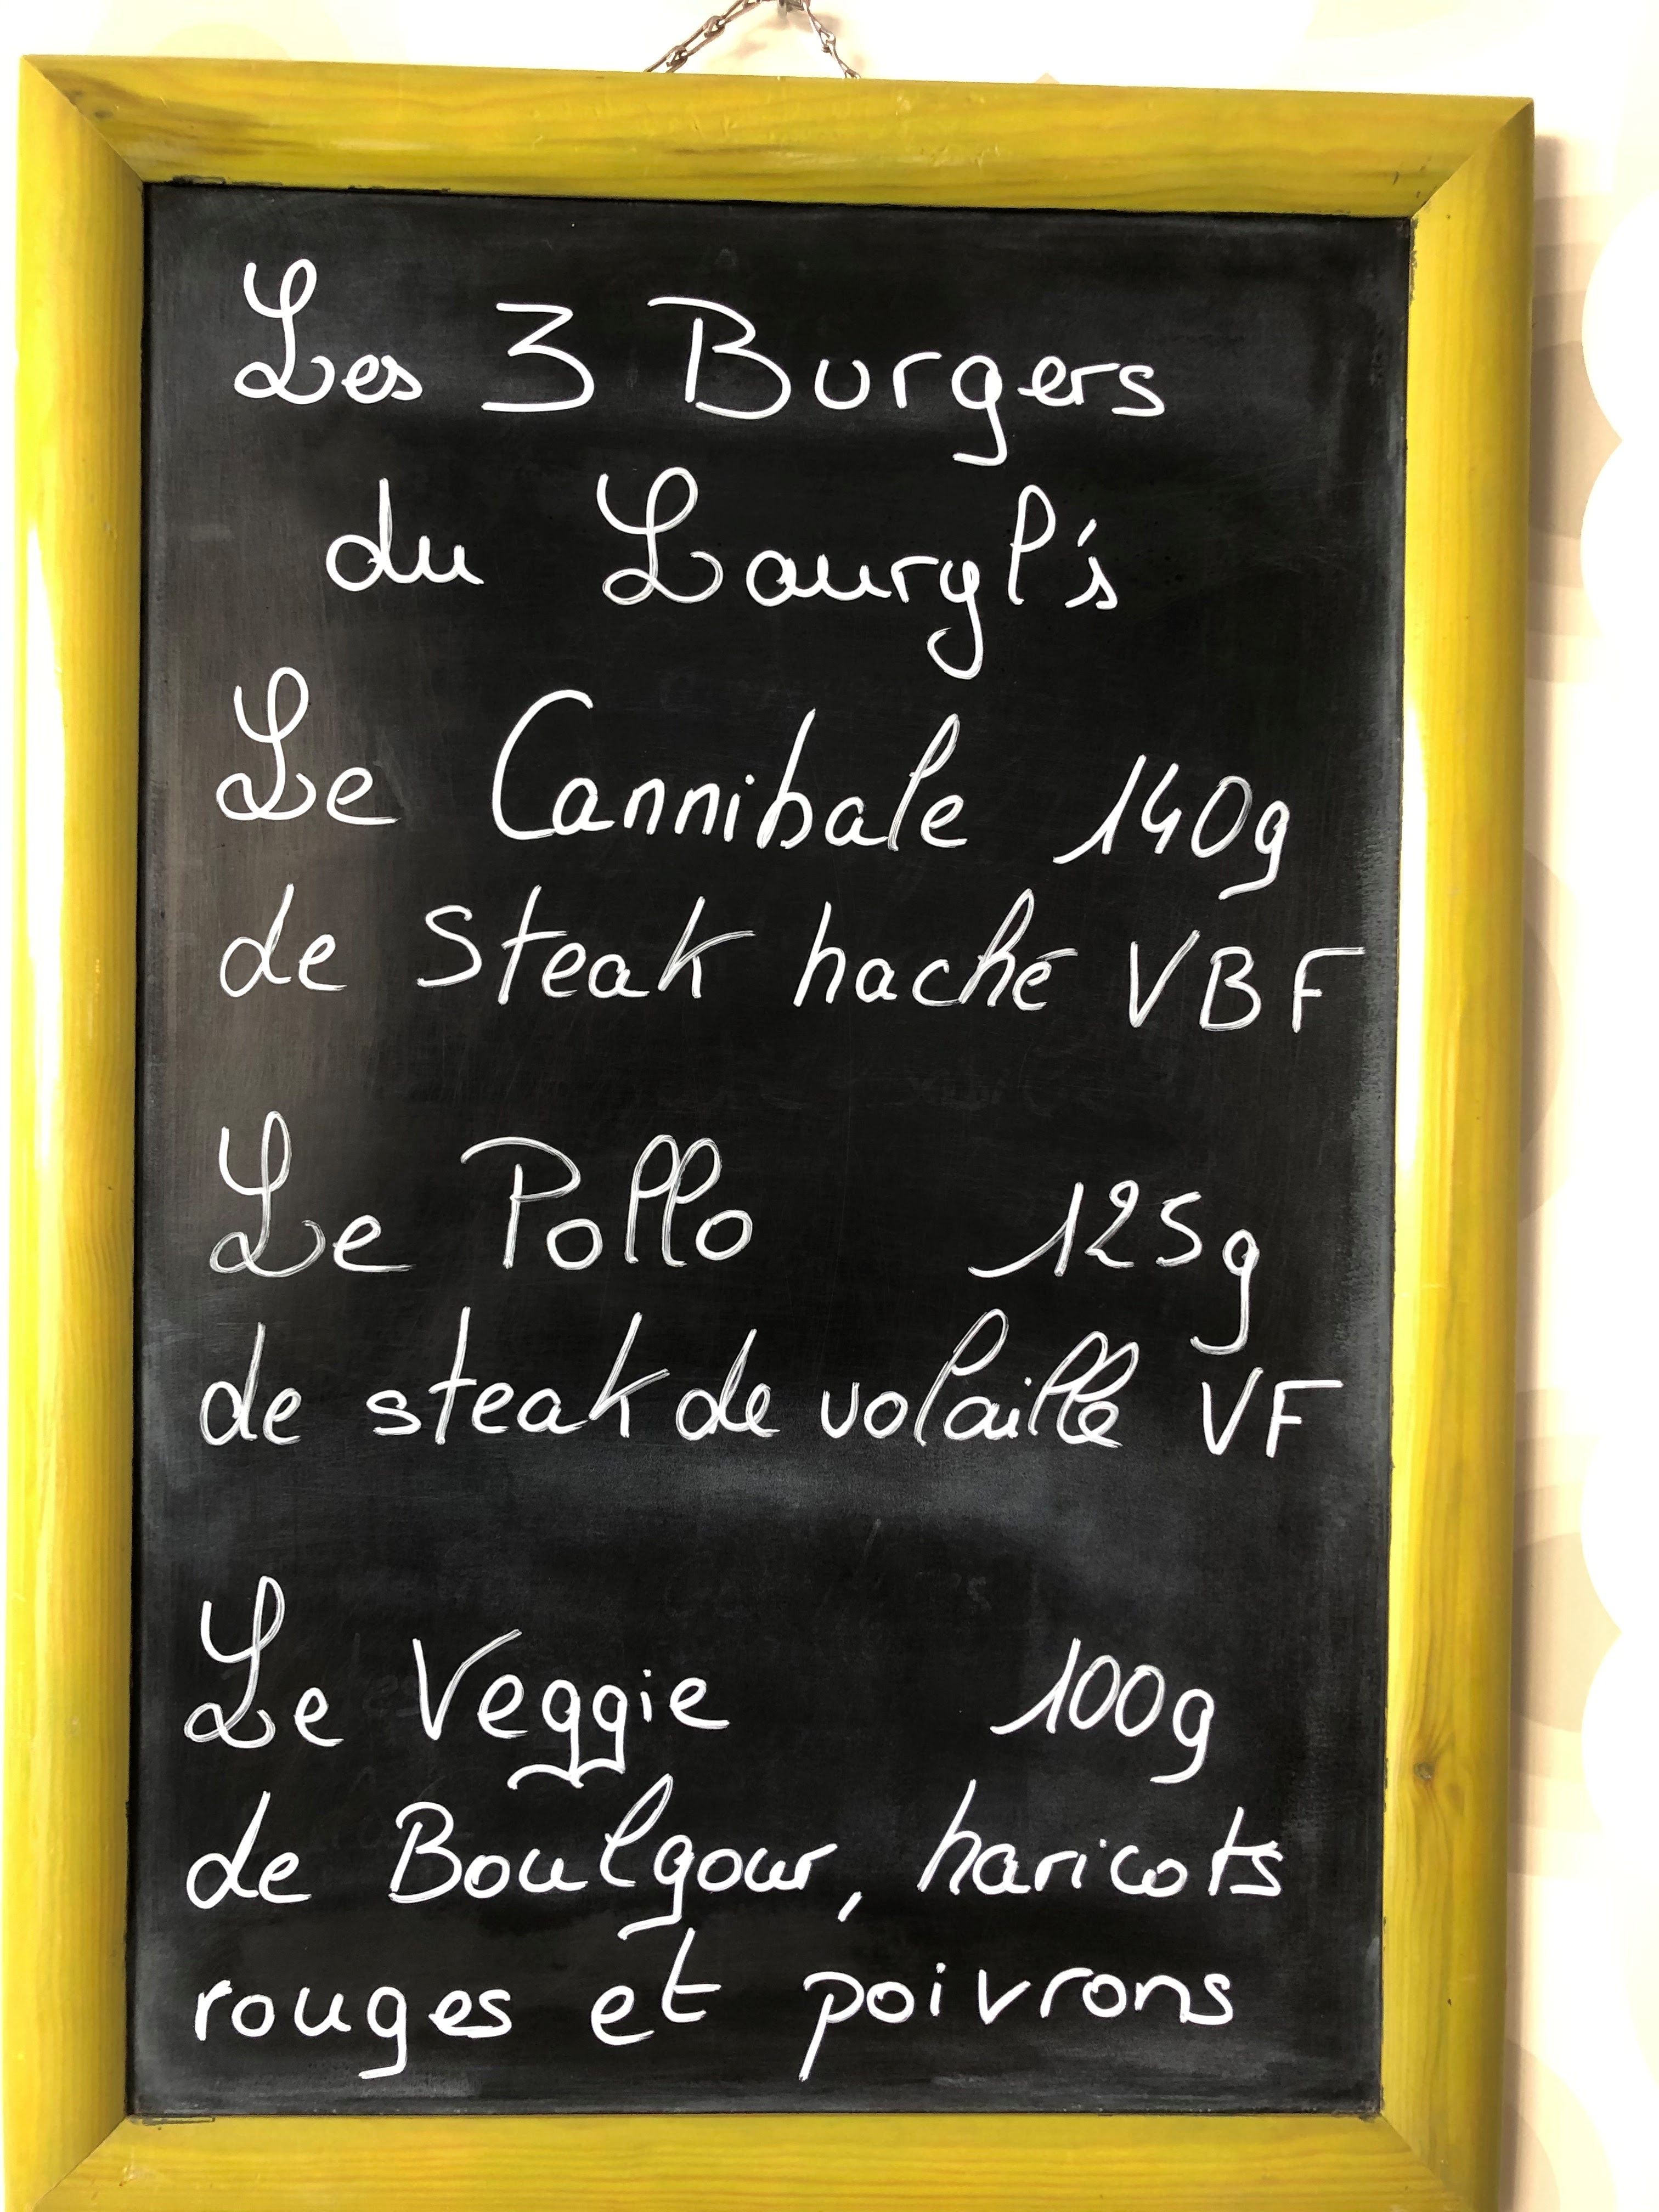 Les 3 Burgers
du Lauryl's
Le Cannibale 140g
de steak haché VBF
Le Pollo 125g
de steak de volaille VF
Le Veggie 100g
de Boulgour, haricots
rouges et poivrons